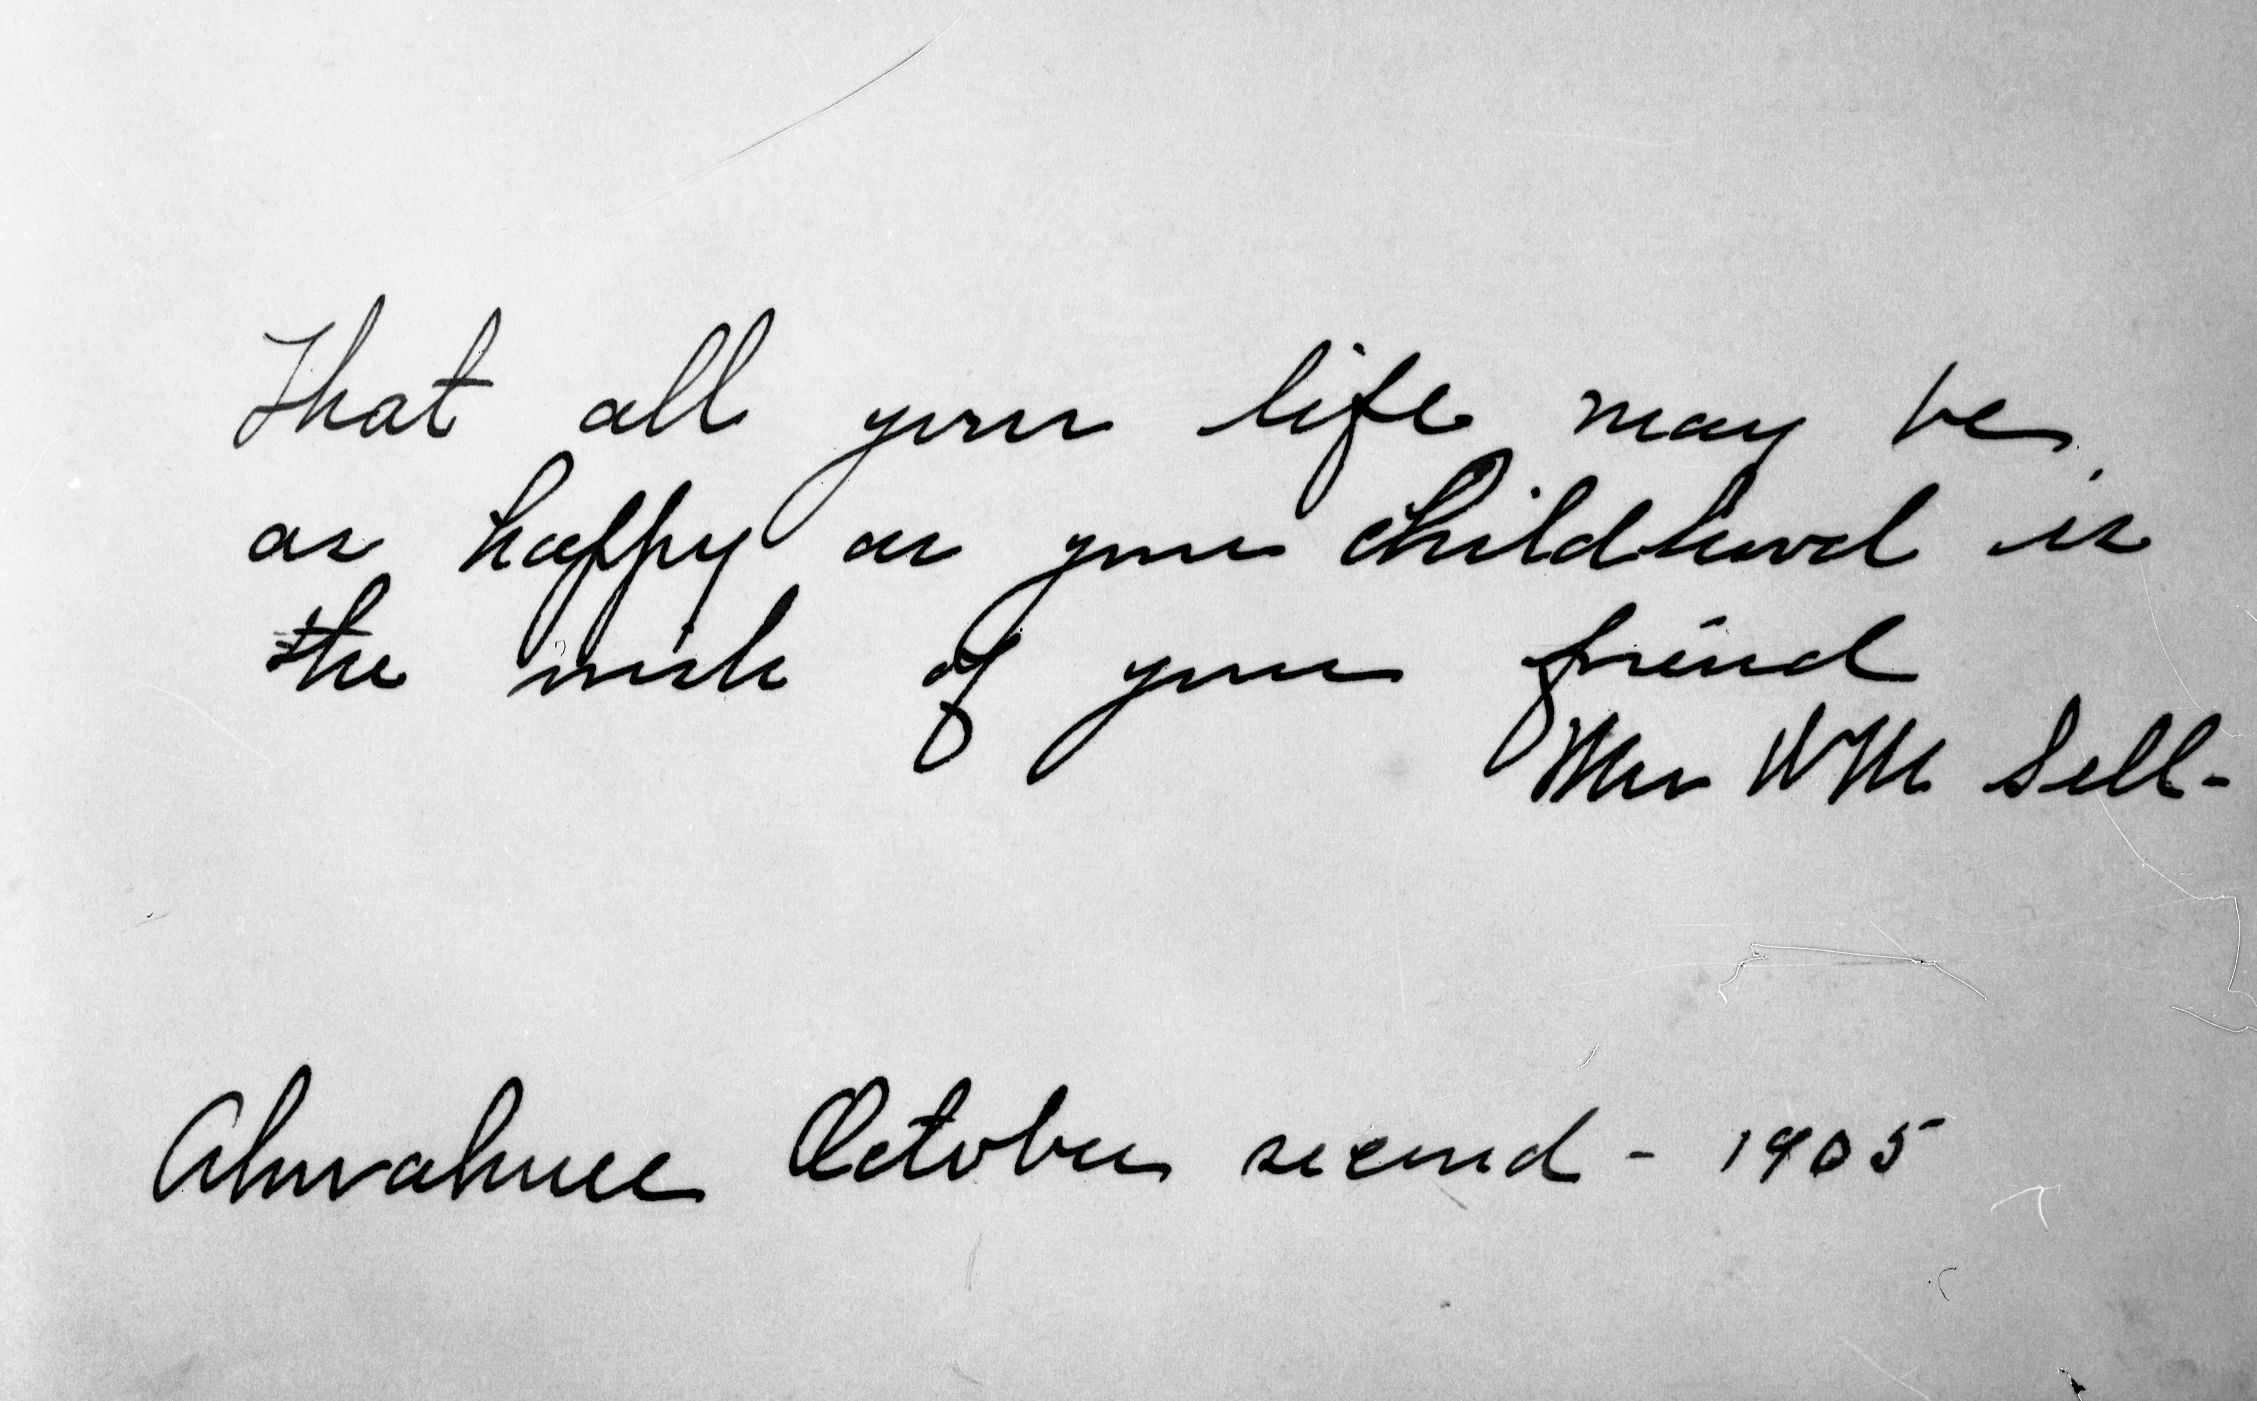 That all your life may be
as happy as your childhood is
the wish of your friend
Mrs W M Sell-
Ahwahnee October second - 1905